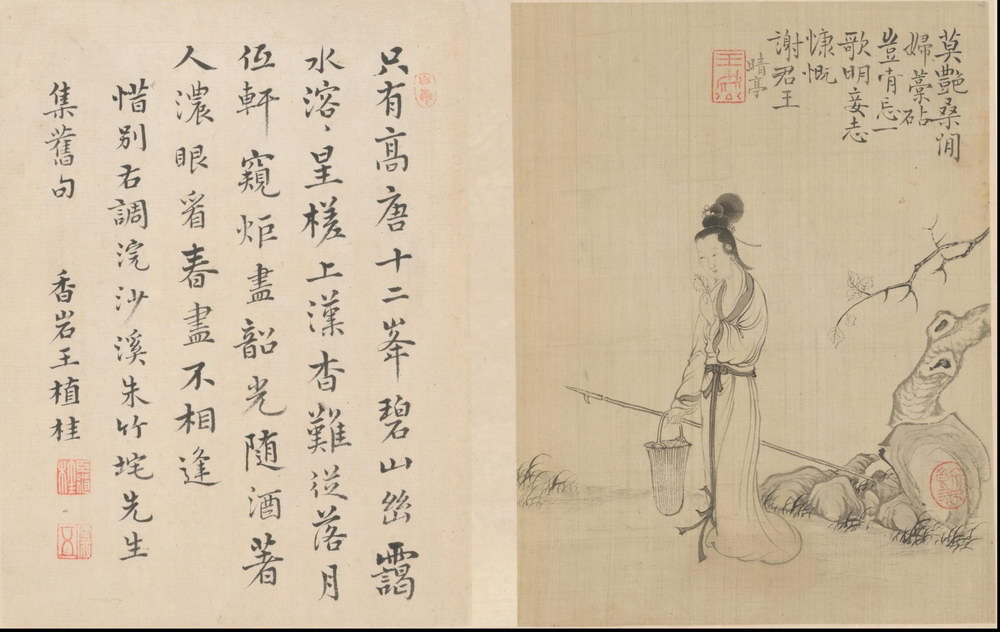 莫艷桑間
婦藁砧
豈肯忘一
歌明妾志
慷慨
謝君王
晴亭
只有高唐十二峯碧山幽靄
水溶〻星槎上漢杳難從落月
低軒窺炬盡韶光随酒著
人濃眼看春盡不相逢
惜别右調浣沙溪朱竹垞先生
集舊句 香岩王植桂